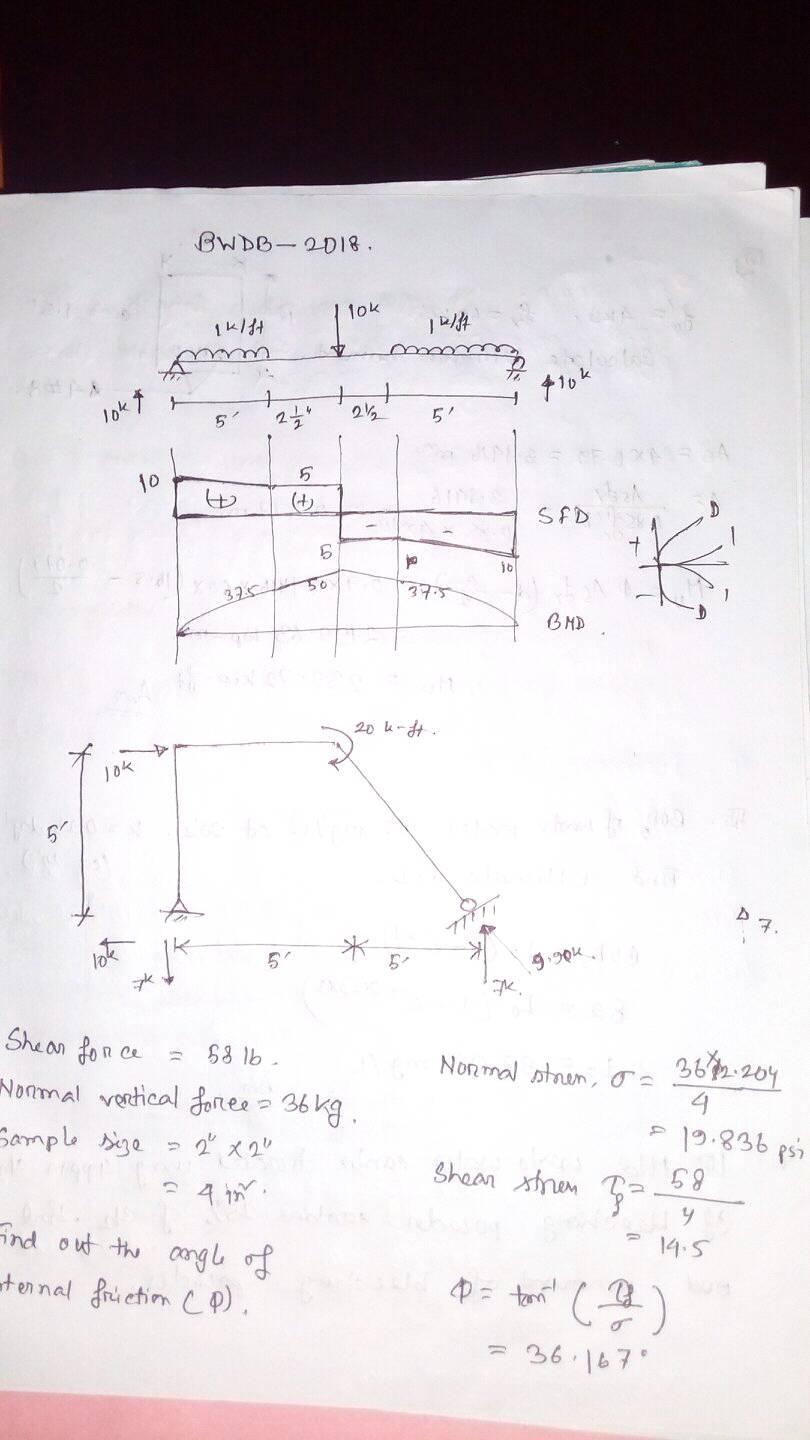 BWDB - 2018.
10k
1k/ft
1k/ft
10k
10k
5'
2 1/2"
2 1/2
5'
10
5
(+)
(+)
-
-
SFD
5
10
10
+
-
D
1
1
D
37.5
50
37.5
BMD.
20 k-ft.
10k
5'
10k
7k
5'
5'
7k.
9.90k.
7.
Shear force = 58 lb.
Normal vertical force = 36 kg.
Sample size = 2" x 2"
= 4 in².
Find out the angle of
internal friction (Φ).
Normal stren, σ = 36×2.204 / 4
= 19.836 psi
Shear stren τf = 58 / 4
= 14.5
Φ = tan⁻¹ (τf / σ)
= 36.167°